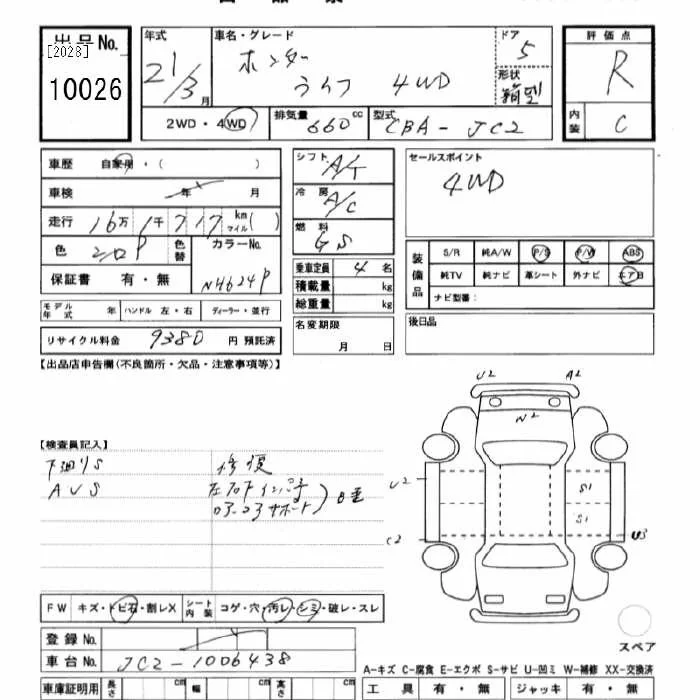 出品票
出品No.
[2028]
10026
年式
21/3月
車名・グレード
ホンダ
ライフ 4WD
ドア
5
形状
箱型
2WD・4WD
排気量 660cc
型式 CBA-JC2
評価点
R
内装
C
車歴 自家用・( )
車検 年 月
走行 16万1千717 km マイル( )
色
色替
カラーNo.
NH624P
保証書 有・無
シフト
A/T
冷房
A/C
燃料
GS
乗車定員 4名
積載量 kg
総重量 kg
名変期限
月 日
セールスポイント
4WD
装備品
S/R 純A/W P/S P/W ABS
純TV 純ナビ 革シート 外ナビ エアB
ナビ型番:
後日品
モデル年式 年
ハンドル 左・右
ディーラー・並行
リサイクル料金 9380 円 預託済
【出品店申告欄(不良箇所・欠品・注意事項等)】
【検査員記入】
下廻りS
修復
U2
A2
N2
U2
S1
S1
C2
U3
FW キズ・トビ石・割レX
シート内装 コゲ・穴・汚レ・シミ・破レ・スレ
スペア
登録No.
車台No. JC2-1006438
A-キズ C-腐食 E-エクボ S-サビ U-凹ミ W-補修 XX-交換済
車庫証明用 長さ cm 幅 cm 高さ cm
工具 有・無 ジャッキ 有・無